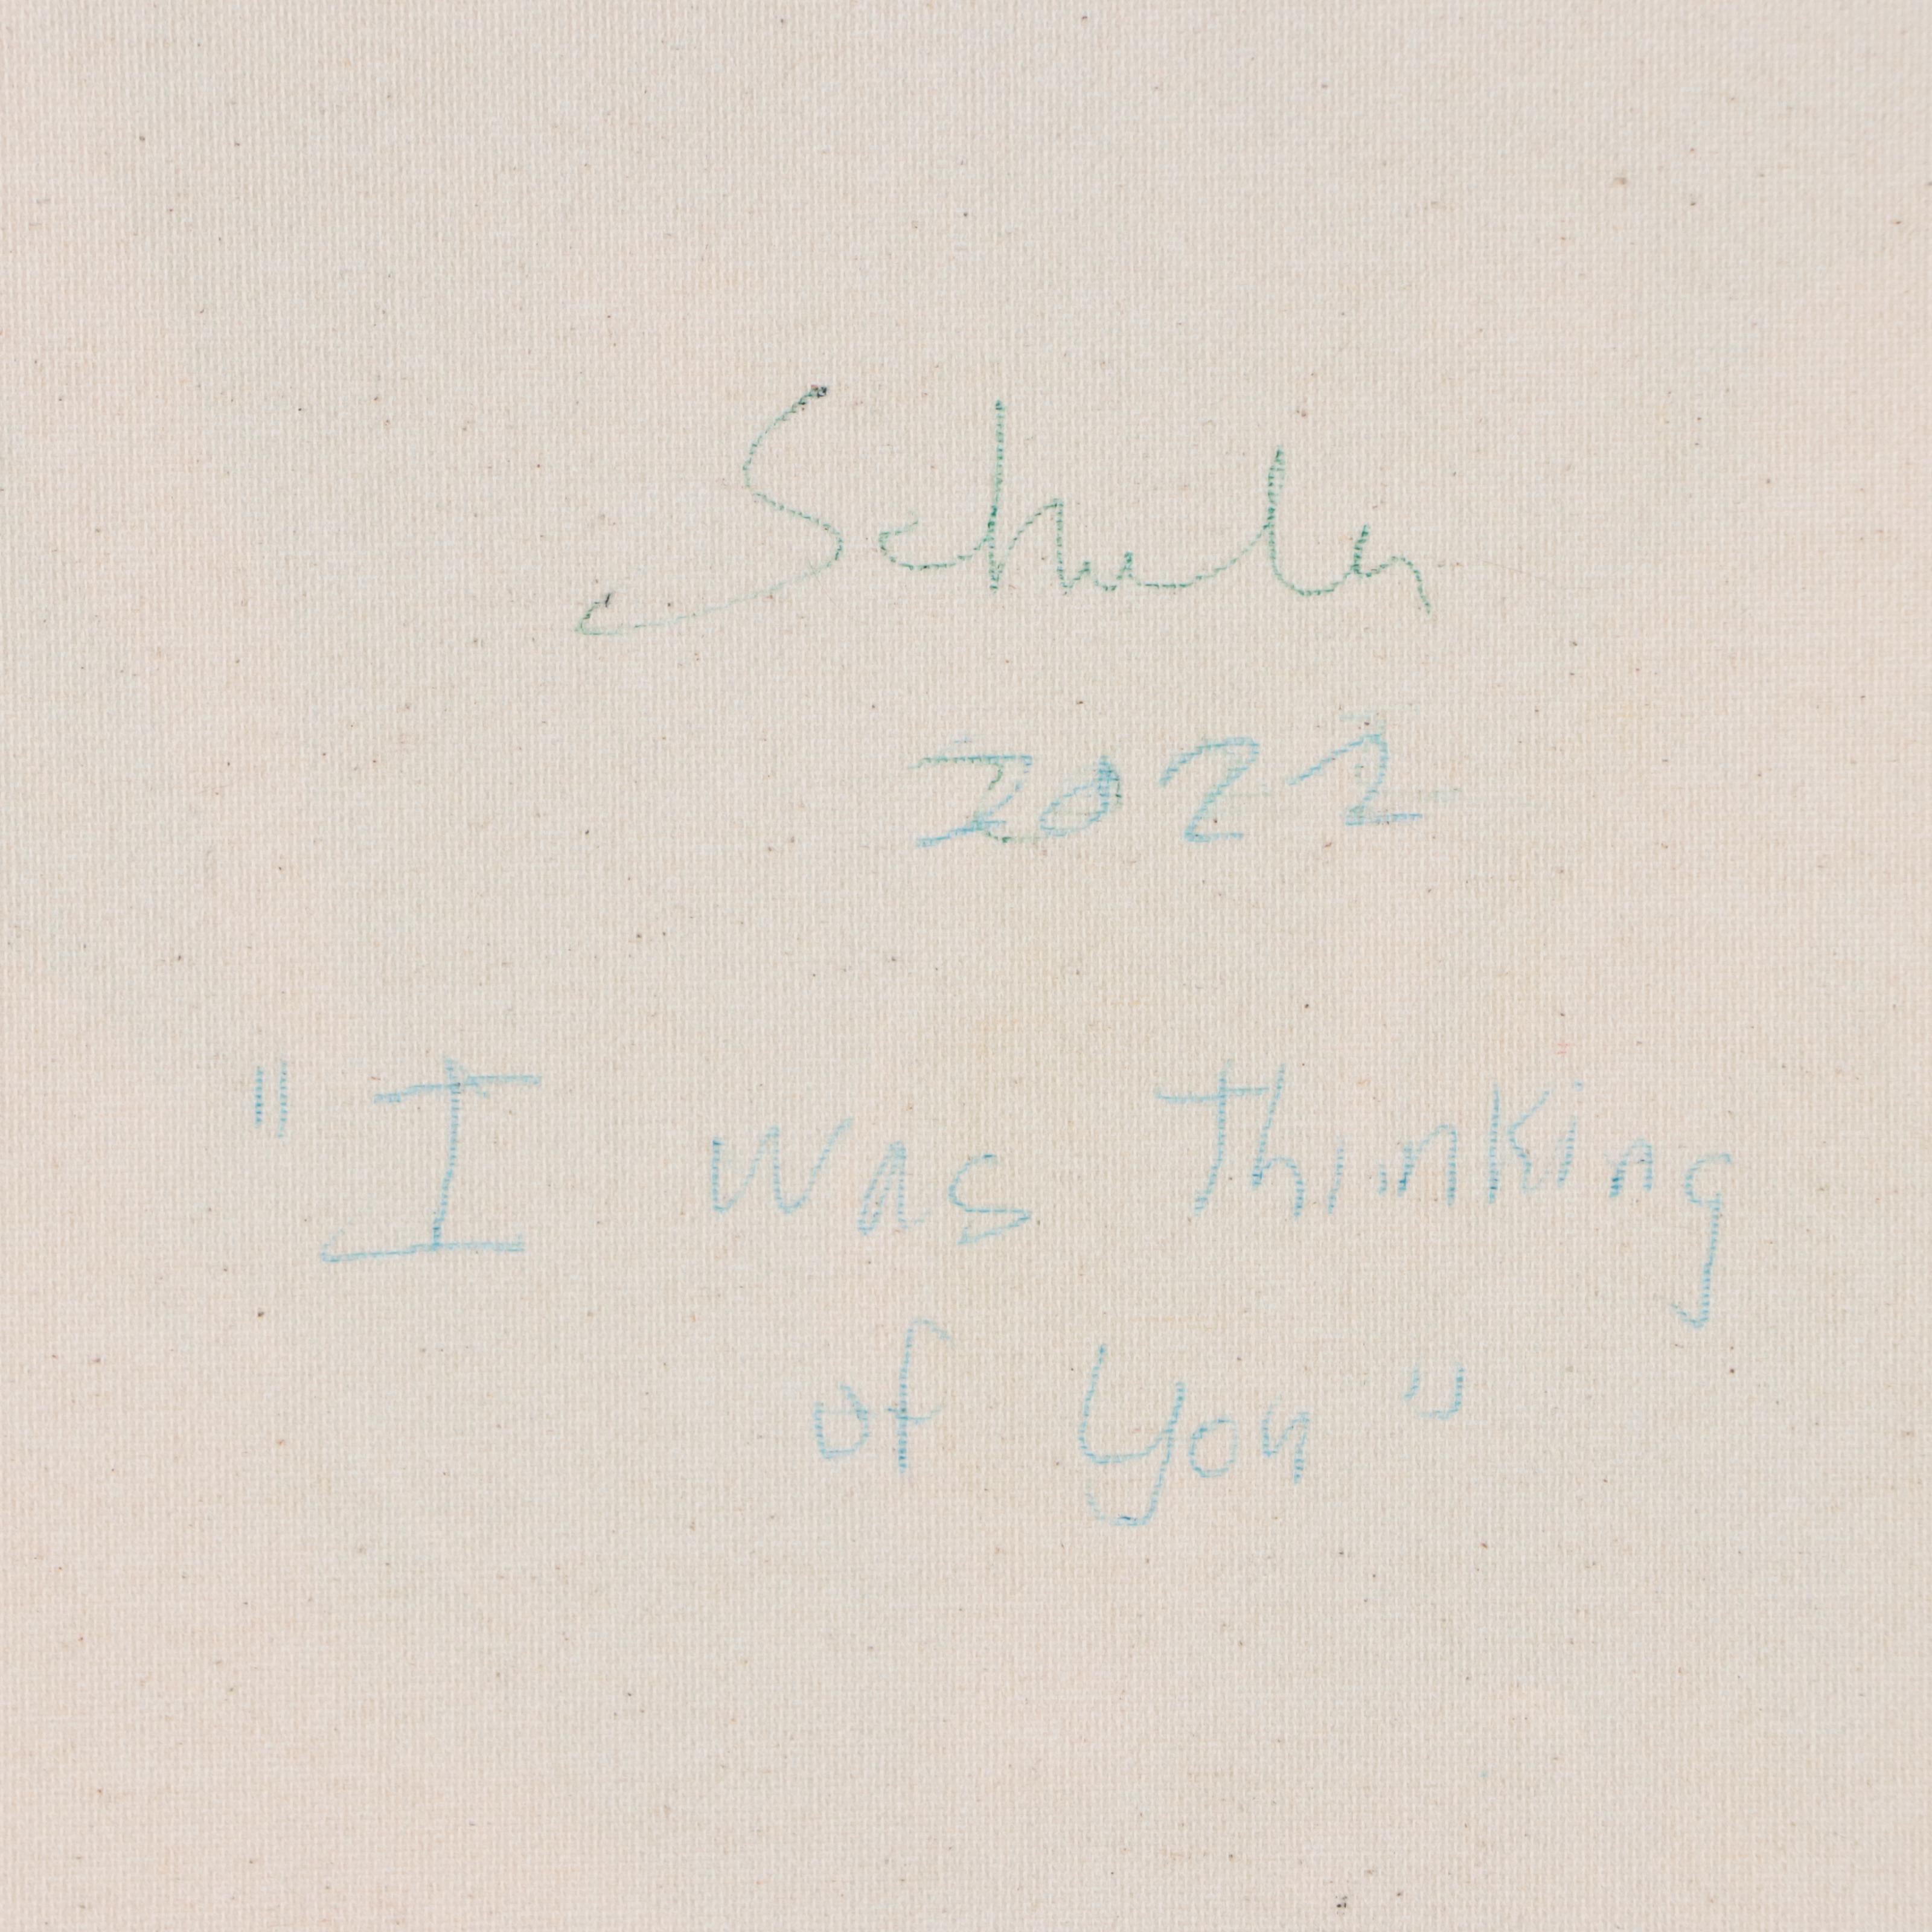 Schuler
2022
"I was thinking
of you"